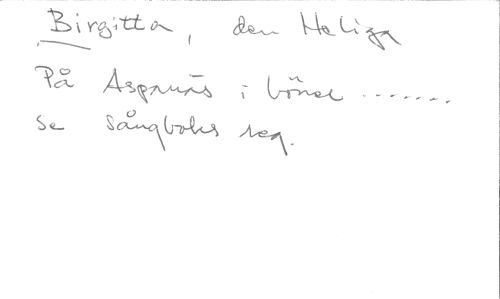 Birgitta, den Heliga
På Aspnäs i bönen .......
se sångboks reg.